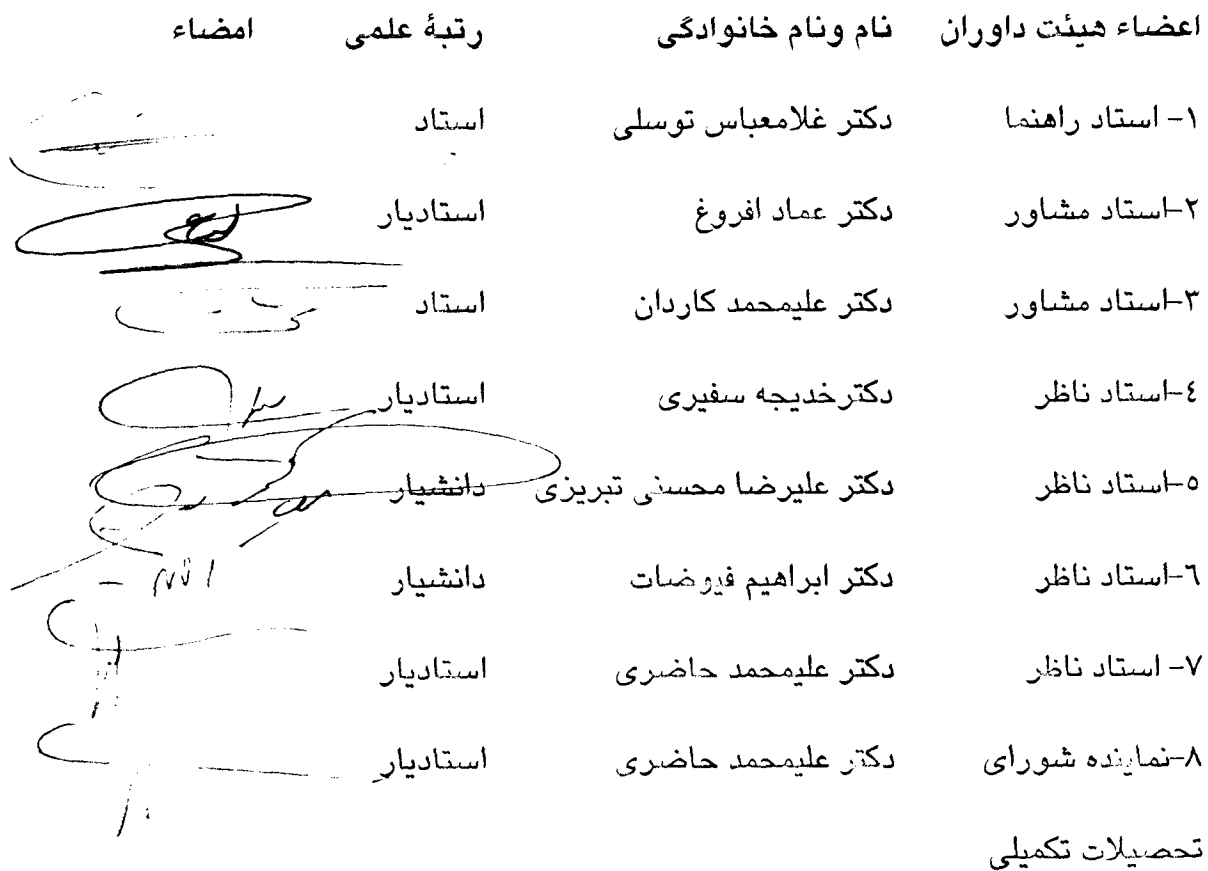 اعضاء هیئت داوران نام ونام خانوادگی رتبۀ علمی امضاء
۱- استاد راهنما دکتر غلامعباس توسلی استاد
۲-استاد مشاور دکتر عماد افروغ استادیار
۳-استاد مشاور دکتر علیمحمد کاردان استاد
٤-استاد ناظر دکترخدیجه سفیری استادیار
٥-استاد ناظر دکتر علیرضا محسنی تبریزی دانشیار
٦-استاد ناظر دکتر ابراهیم فیوضات دانشیار
۷- استاد ناظر دکتر علیمحمد حاضری استادیار
۸-نماینده شورای دکتر علیمحمد حاضری استادیار
تحصیلات تکمیلی